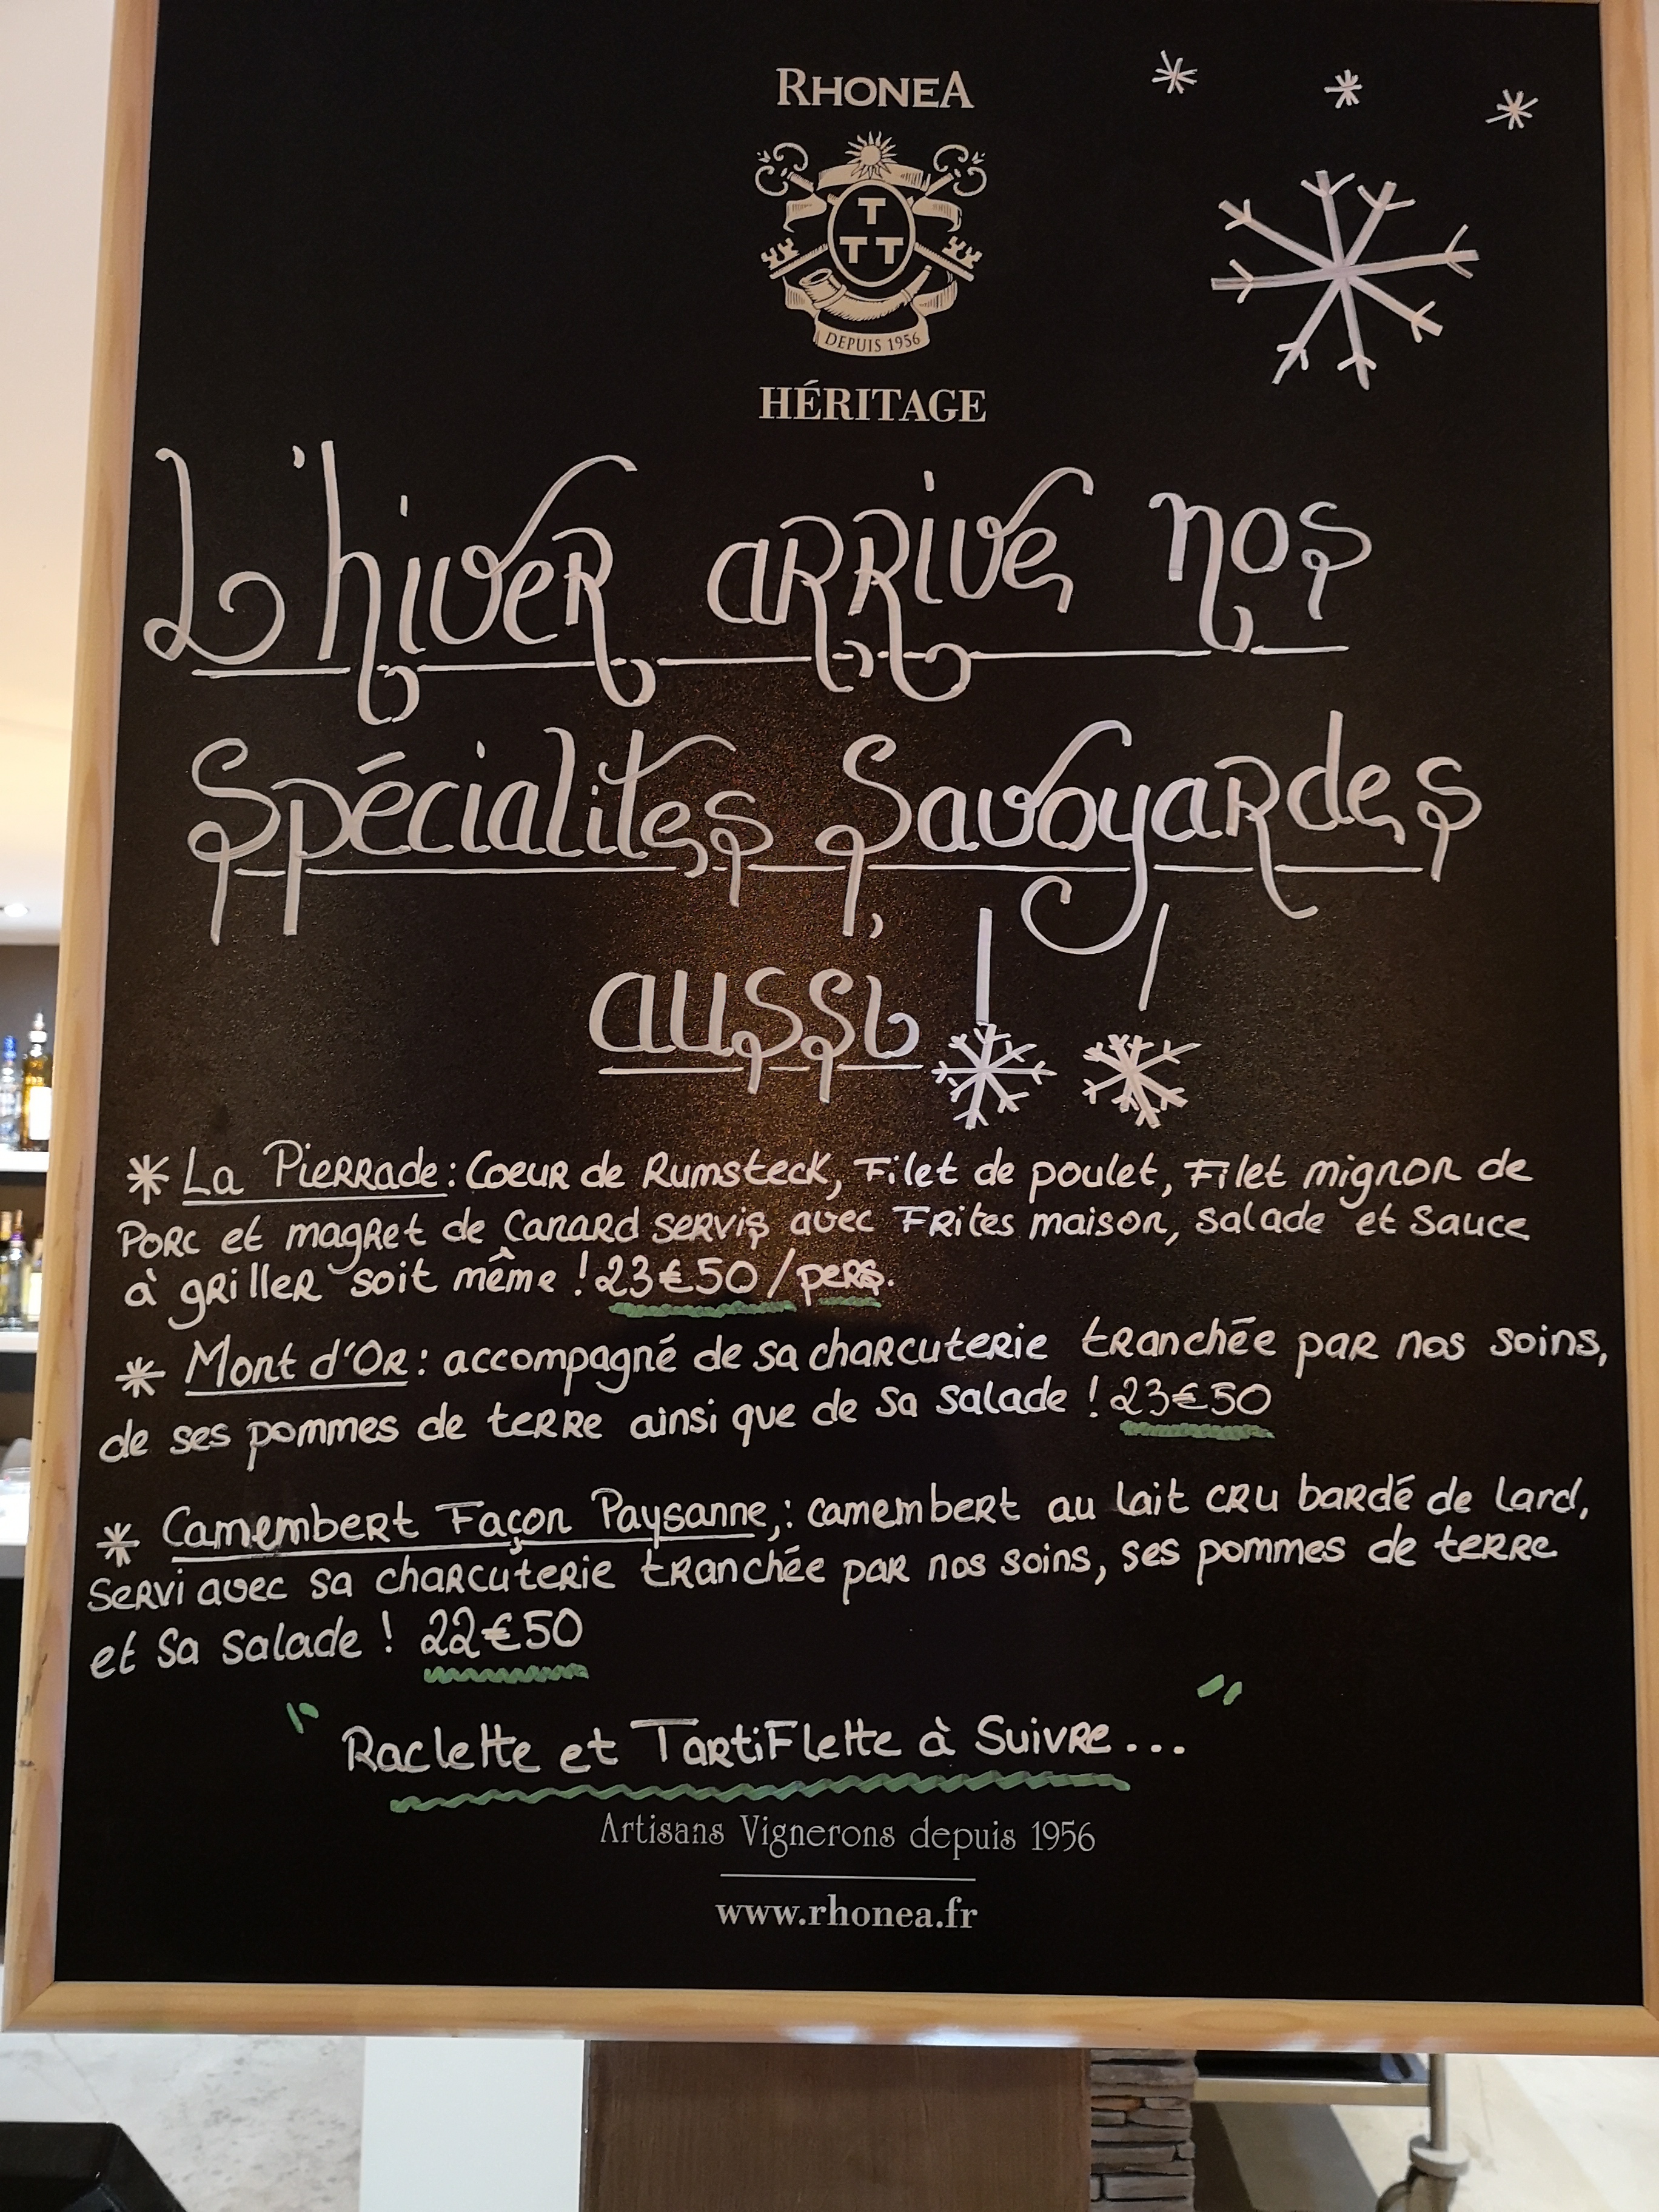 RHONEA
T
TT
DEPUIS 1956
HÉRITAGE
L'hiver arrive, nos
Spécialités Savoyardes
aussi !!
* La Pierrade : Coeur de Rumsteck, Filet de poulet, Filet mignon de
Porc et magret de Canard servis avec Frites maison, salade et Sauce
à griller soit même ! 23€50/pers.
* Mont d'Or : accompagné de sa charcuterie tranchée par nos soins,
de ses pommes de terre ainsi que de sa salade ! 23€50
* Camembert Façon Paysanne, : camembert au lait cru bardé de lard,
servi avec sa charcuterie tranchée par nos soins, ses pommes de terre
et sa salade ! 22€50
" Raclette et Tartiflette à Suivre... "
Artisans Vignerons depuis 1956
www.rhonea.fr